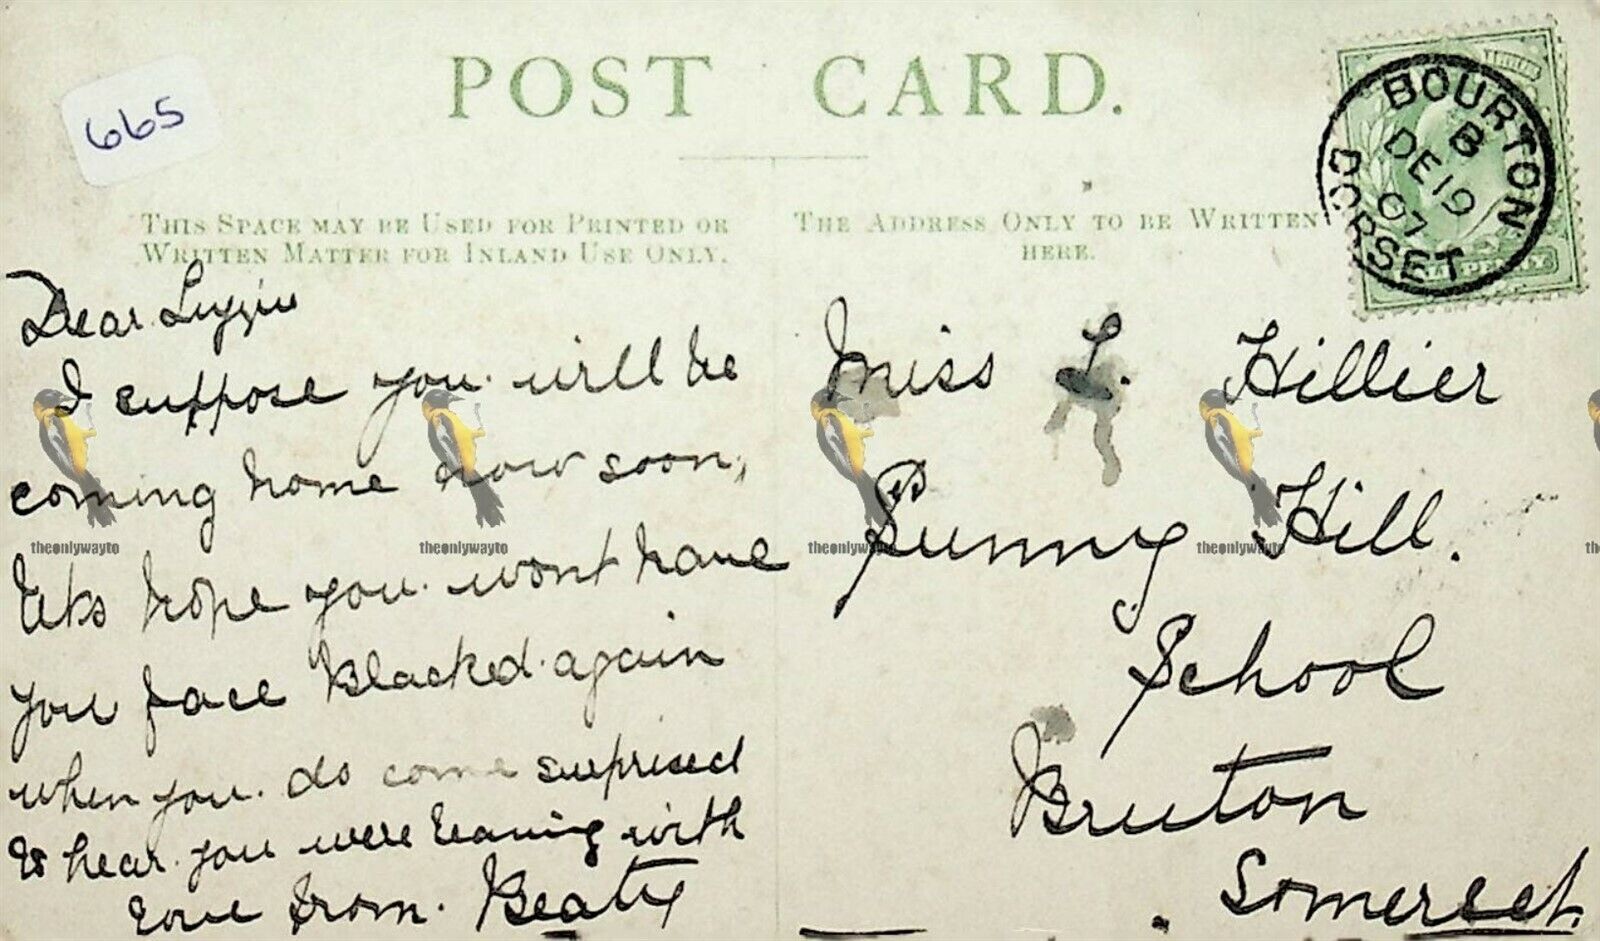 POST CARD.
665
THIS SPACE MAY BE USED FOR PRINTED OR
WRITTEN MATTER FOR INLAND USE ONLY.
THE ADDRESS ONLY TO BE WRITTEN
HERE.
BOURTON
B
DE 19
07
DORSET
Dear Lizzie
I suppose you will be
coming home now soon,
lets hope you wont have
you face Blacked again
when you do come surprised
to hear you were leaving with
love from Beaty
Miss L. Hillier
Sunny Hill.
School
Bruton
Somerset.
theonlywayto
theonlywayto
theonlywayto
theonlywayto